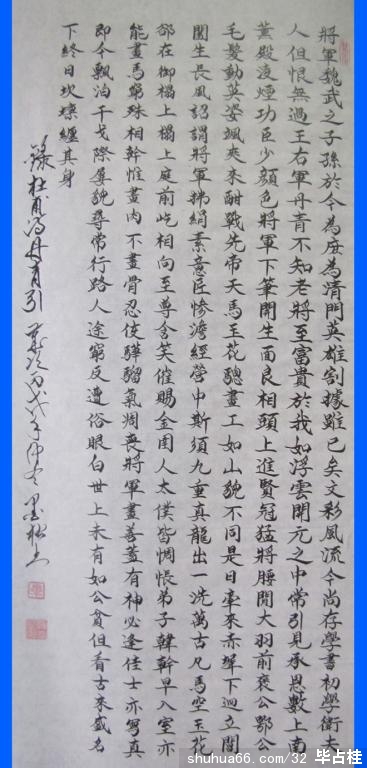 將軍魏武之子孫於今為庶為清門英雄割據雖已矣文彩風流今尚存學書初學衛夫
人但恨無過王右軍丹青不知老將至富貴於我如浮雲開元之中常引見承恩數上南
薰殿凌煙功臣少顏色將軍下筆開生面良相頭上進賢冠猛將腰間大羽前褒公鄂公
毛髮動英姿颯爽來酣戰先帝天馬玉花驄畫工如山貌不同是日牽來赤墀下迥立閶
闔生長風詔謂將軍拂絹素意匠慘澹經營中斯須九重真龍出一洗萬古凡馬空玉花
卻在御榻上榻上庭前屹相向至尊含笑催賜金圉人太僕皆惆悵弟子韓幹早入室亦
能畫馬窮殊相幹惟畫肉不畫骨忍使驊騮氣凋喪將軍畫善蓋有神必逢佳士亦寫真
即今飄泊干戈際屢貌尋常行路人途窮反遭俗眼白世上未有如公貧但看古來盛名
下終日坎壈纏其身
錄杜甫詩丹青引
shuhua66.com/32 毕占桂